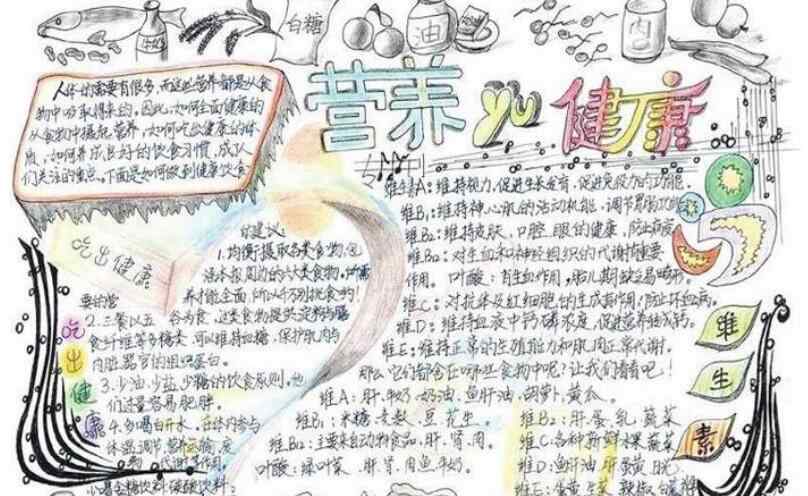 白糖
油
肉
营养yu健康
人体的需要有很多,而这些营养都是从食
物中吸取得来的,因此,如何全面健康的
从食物中摄花营养,如何吃出健康的体
质,如何养成良好的饮食习惯,成了人
们关注的重点。下面是如何做到健康饮食
的建议:
吃出健康
1.均衡摄取各类食物,包
括水根周边的六大类食物,
养才能全面,所以千万别挑食哟!
要的营
2.三餐以五谷为食,这类食物提供淀粉与膳
食纤维等多糖类,可以维持血糖,保护肌肉与
内脏器官的组识蛋白。
3.少油、少盐、少糖的饮食原则,他
们过量容易肥胖。
4.多喝白开水,在体内参与
体温调节、营养运输、废
物
吃出健康
维生素A:维持视力,促进生长发育,促进免疫力的功能。
维B₁:维持神心肌的活动机能,调节胃肠功能
维B₂:维持皮肤、口腔、眼的健康,防止病废
维B₁₂:对生血和神经组织的代谢有重要
作用。叶酸:有生血作用,胎儿期缺乏易畸形。
维C:对抗体及红细胞的生成有作用,防止坏血病。
维D:维持血液中钙、磷浓度,促进营养强成钙。
维E:维持正常的生殖能力和肌肉正常代谢。
那么它们都含在哪些食物中呢?让我们看看吧!
维A:肝、牛奶、奶油、鱼肝油、胡萝卜、黄瓜。
维B₁:米糖、麦麸、豆、花生。
维B₂:肝、蛋、乳、蔬菜
维B₁₂:主要来自动物食品,肝、肾、肉。
维C:各种新鲜水果、蔬菜
叶酸:绿叶菜、肝、肾、肉、鱼、牛奶。
维D:鱼肝油、肝、蛋黄、日光
维E:
维生素